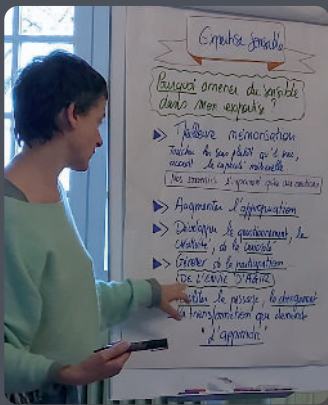 Expertise sensible
Pourquoi amener du sensible
dans mon expertise ?
Meilleure mémorisation
la capacité
Nos souvenirs s'impriment grâce aux émotions
Augmenter l'appropriation
Développer le questionnement, la
créativité, de la curiosité
Générer de la participation
DE L'ENVIE D'AGIR
le passage, le changement
la transformation que demande
"d'apprendre"